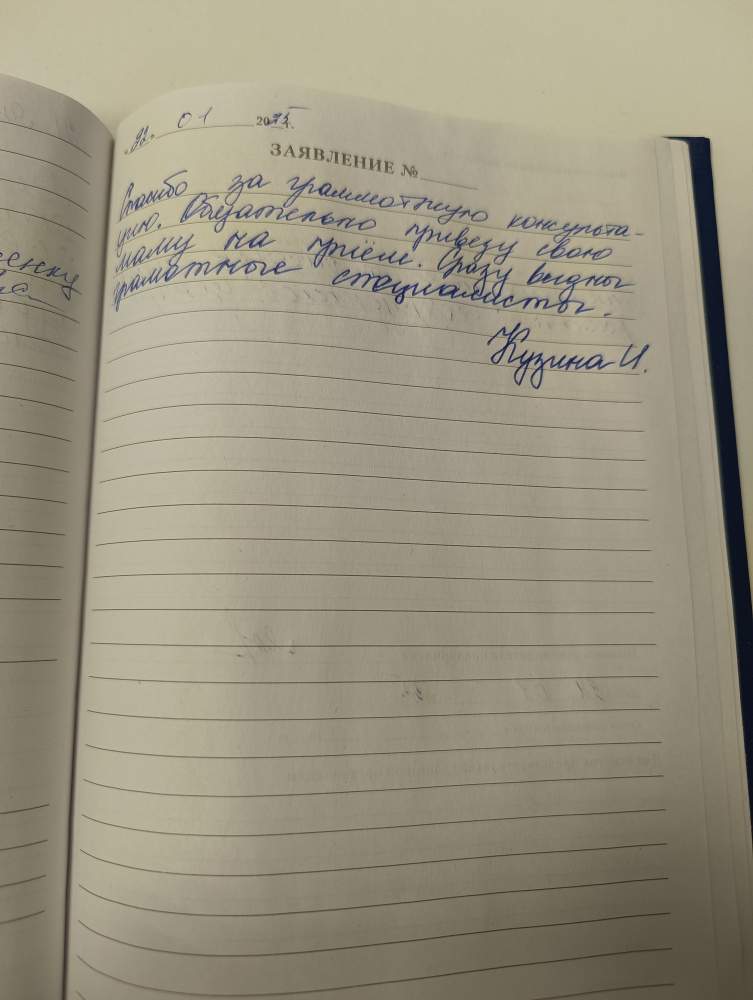 01 20
ЗАЯВЛЕНИЕ №
Спасибо за грамматную консульта-
цию. Обязательно привезу свою
маму на приём. Сразу видны
граматные специалисты.
Кузина И.